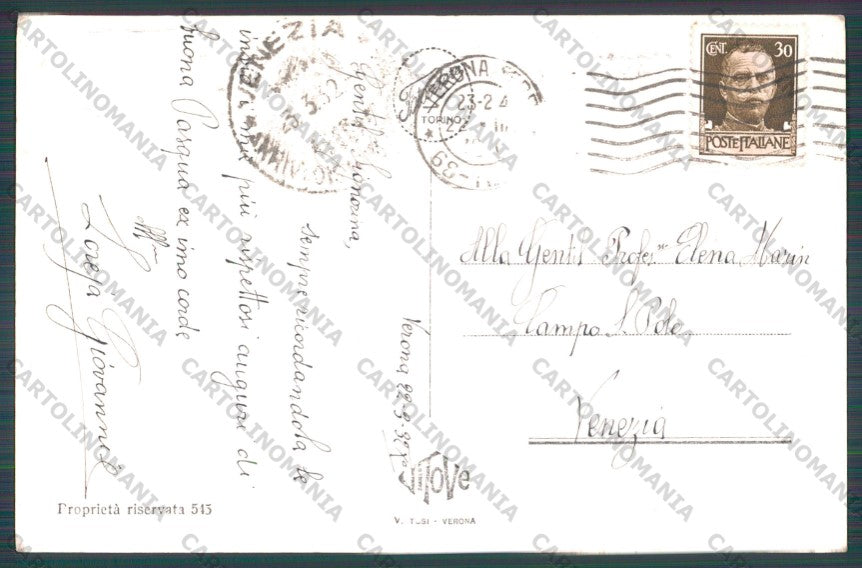 Verona 22-3-32 X
Gentil Signorina,
sempre ricordandola le
invio i miei più rispettosi auguri di
Buona Pasqua ex imo corde
aff
Loreja Giovanni
Alla Gentil Profes. Elena Marin
Campo S. Polo
Venezia
CENT. 30
POSTE ITALIANE
VERONA
23-2
VENEZIA
3.32
TORINO
TOVE
V. TUSI - VERONA
Proprietà riservata 513
CARTOLINOMANIA